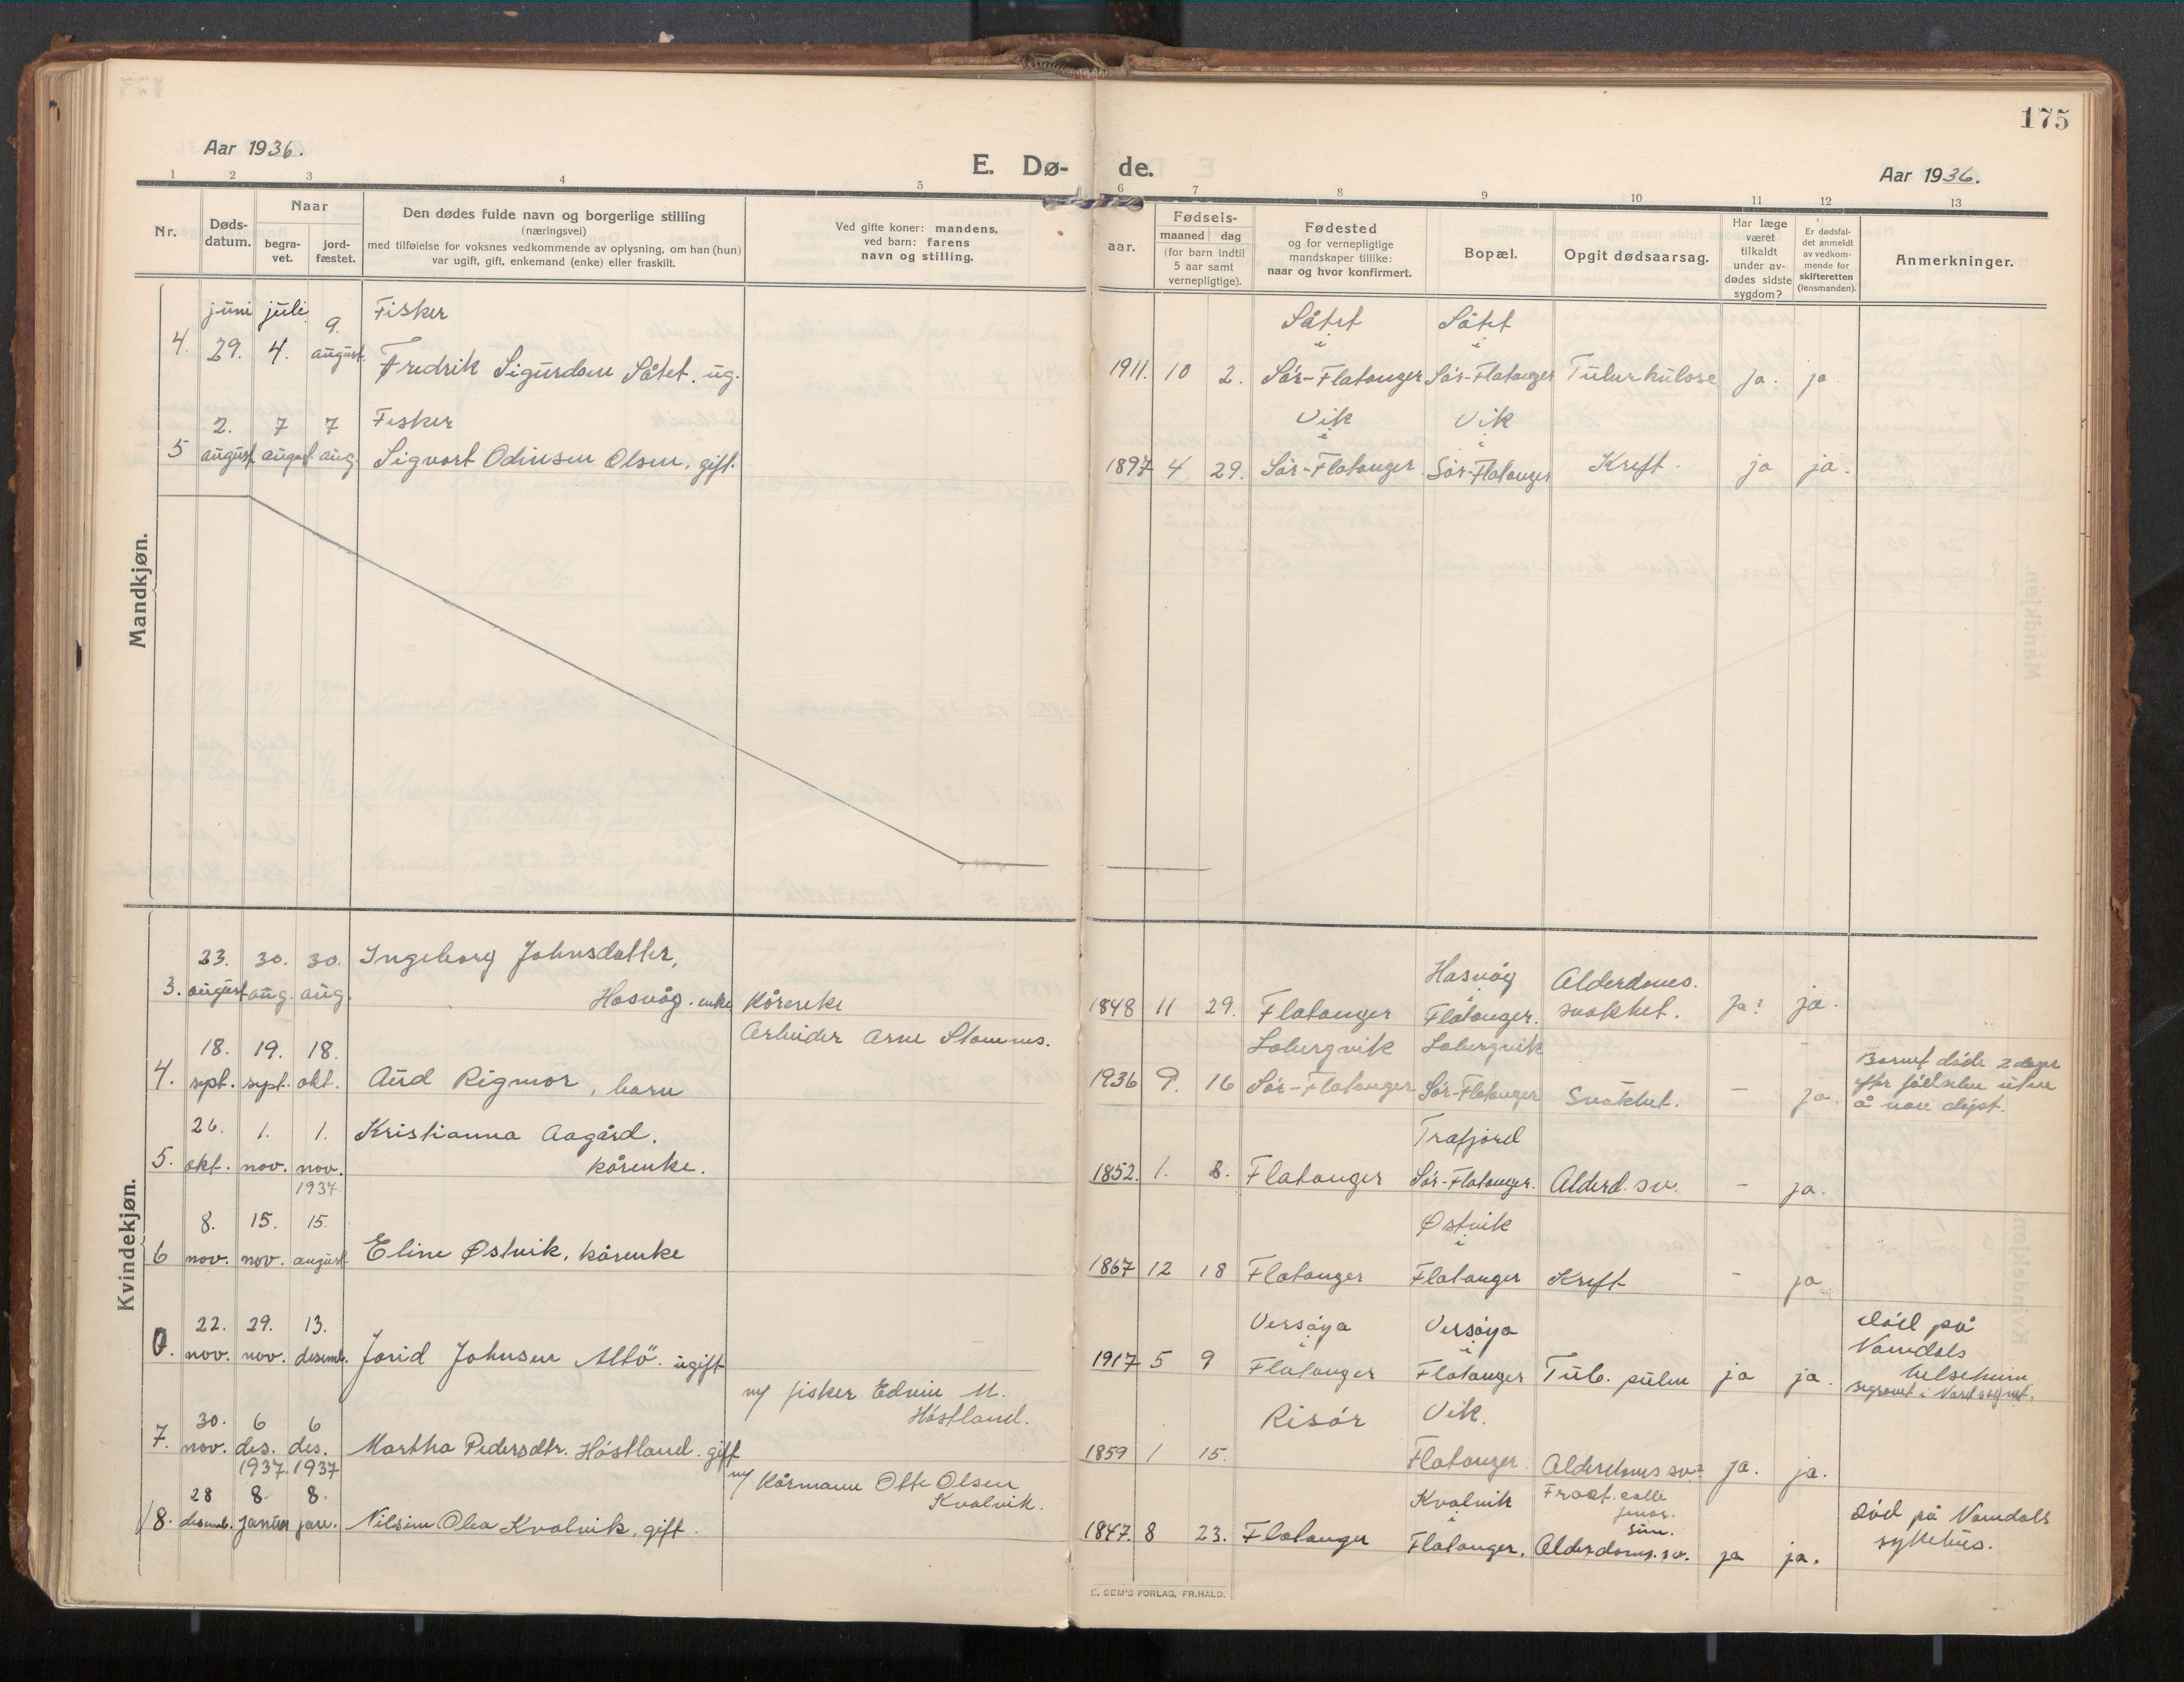 175
Aar 1936.
E. Dø-
de.
Aar 1936.
1 2 3 4 5 6 7 8 9 10 11 12 13
Nr.
Døds-
datum.
Naar
begra-
vet.
jord-
fæstet.
Den dødes fulde navn og borgerlige stilling
(næringsvei)
med tilføielse for voksnes vedkommende av oplysning, om han (hun)
var ugift, gift, enkemand (enke) eller fraskilt.
Ved gifte koner: mandens,
ved barn: farens
navn og stilling.
aar.
Fødsels-
maaned dag
(for barn indtil
5 aar samt
vernepligtige).
Fødested
og for vernepligtige
mandskaper tillike:
naar og hvor konfirmert.
Bopæl.
Opgit dødsaarsag.
Har læge
været
tilkaldt
under av-
dødes sidste
sygdom?
Er dødsfal-
det anmeldt
av vedkom-
mende for
skifteretten
(lensmanden).
Anmerkninger.
Mandkjøn.
juni juli 9. Fisker Såtet Såtet
i i
4. 29. 4. august. Fredrik Sigurdsen Såtet. ug. 1911. 10 2. Sør-Flatanger Sør-Flatanger Tuberkulose ja. ja.
2. 7 7 Fisker Vik Vik
i i
5 august august aug. Sigvart Odinsen Olsen, gift. 1897 4 29. Sør-Flatanger Sør-Flatanger Kreft. ja ja.
Kvindekjøn.
23. 30. 30. Ingeborg Johnsdatter, Hasvåg Alderdoms.
i
3. august aug. aug. Hasvåg. enke Kårenke 1848 11 29. Flatanger Flatanger. svakhet. ja? ja.
18. 19. 18. Arbeider Arne Stamnes. Løbergvik Løbergvik
4. sept. sept. okt. Aud Rigmor, barn 1936 9. 16 Sør-Flatanger Sør-Flatanger Svakhet. – ja.
Barnet døde 2 dager
efter fødselen uten
å være døpt.
26. 1. 1. Kristianna Aagård, Trafjord
5. okt. nov. nov. kårenke. 1852. 1. 8. Flatanger Sør-Flatanger. Alderd. sv. – ja.
1937
8. 15. 15. Østvik
i
6 nov. nov. august Eline Østvik, kårenke 1867 12 18 Flatanger Flatanger Kreft – ja
22. 29. 13. Versøya Versøya
i i
0. nov. nov. desemb. Jorid Johnsen Altø. ugift 1917 5 9 Flatanger Flatanger Tub. pulm ja ja.
død på
Namdals
helseheim
begravet i
m/ fisker Edvin M.
Høstland.
30. 6 6 Risør Vik.
7. nov. des. des. Martha Pedersdtr. Høstland. gift 1859 1 15. Flatanger Alderdoms sv. ja. ja.
1937. 1937
m/ Kårmann Otte Olsen
Kvalvik.
28 8. 8. Kvalvik Fract. colli
i
sin.
8. desemb. januar jan. Nilsine Olea Kvalvik, gift. 1847. 8 23. Flatanger Flatanger. Alderdoms. sv. ja ja.
Død på Namdals
sykehus.
E. SEM'S FORLAG, FR.HALD.